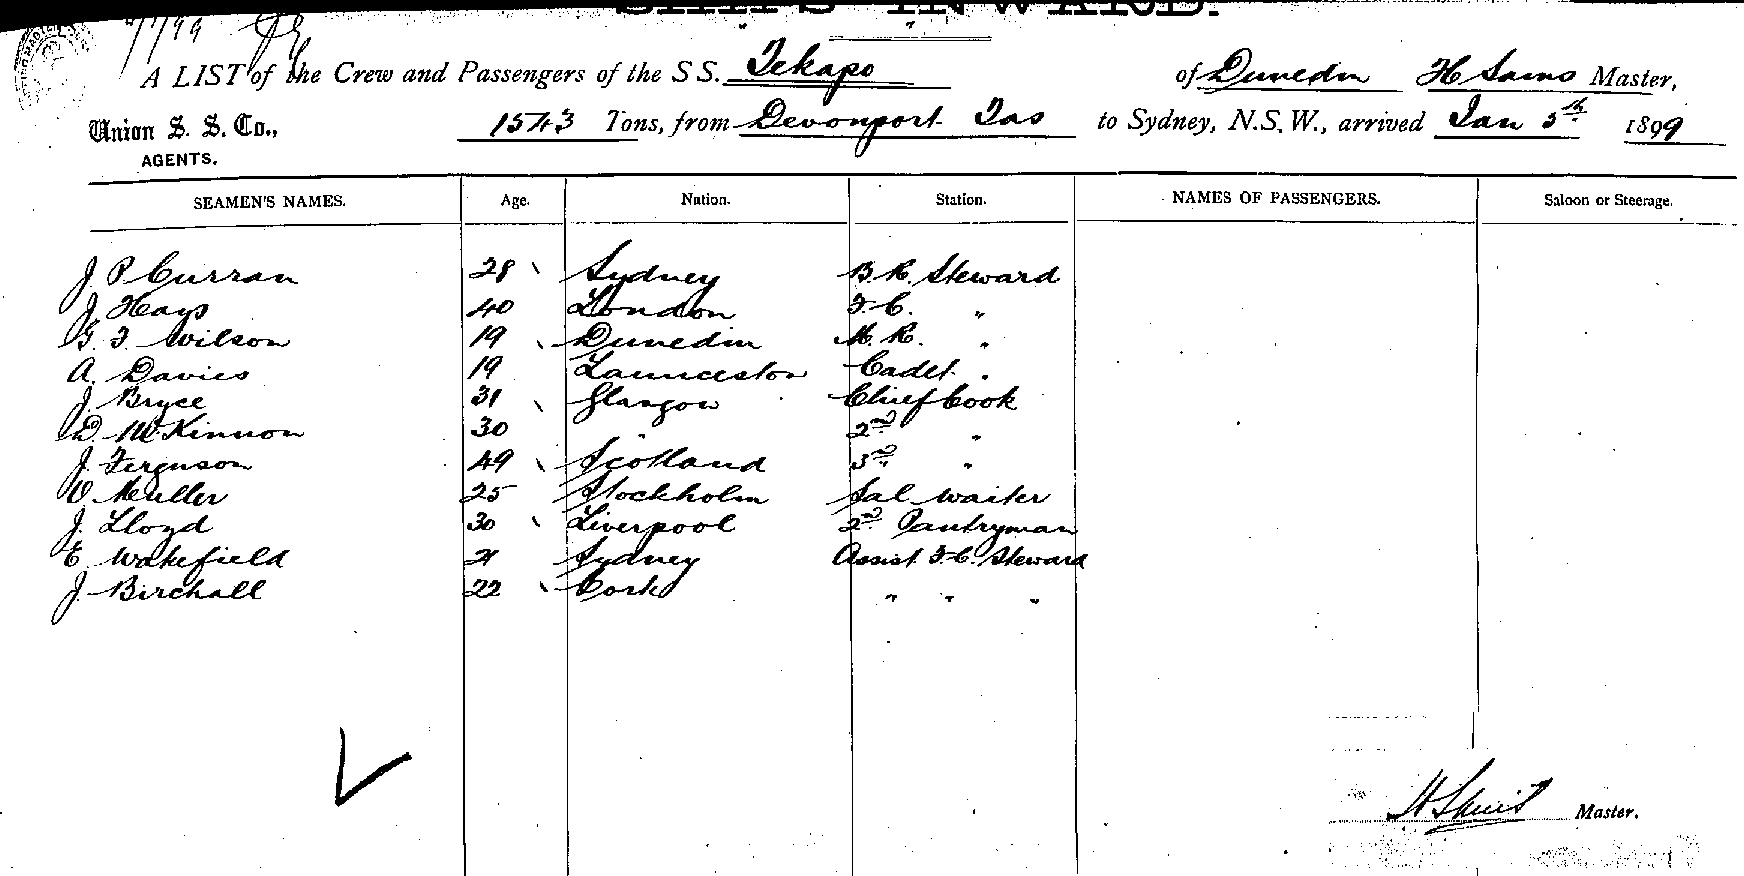 SHIPS INWARD.
A LIST of the Crew and Passengers of the S S. Tekapo of Dunedin H Sams Master,
Union S. S. Co., 1543 Tons, from Devonport Tas to Sydney, N.S.W., arrived Jan 5th 1899
AGENTS.
SEAMEN'S NAMES. Age. Nation. Station. NAMES OF PASSENGERS. Saloon or Steerage.
J P Curran 28 Sydney B. R. Steward
J Hays 40 London F. C. "
G. F. Wilson 19 Dunedin M. R. "
A. Davies 19 Launceston Cadet "
J. Bryce 31 Glasgow Chief Cook
D. McKinnon 30 " 2nd "
J. Ferguson 49 Scotland 3rd "
O. Muller 25 Stockholm Sal Waiter
J. Lloyd 30 Liverpool 2nd Pantryman
E Wakefield 21 Sydney Assist F. C. Steward
J. Birchall 22 Cork " " "
Master.